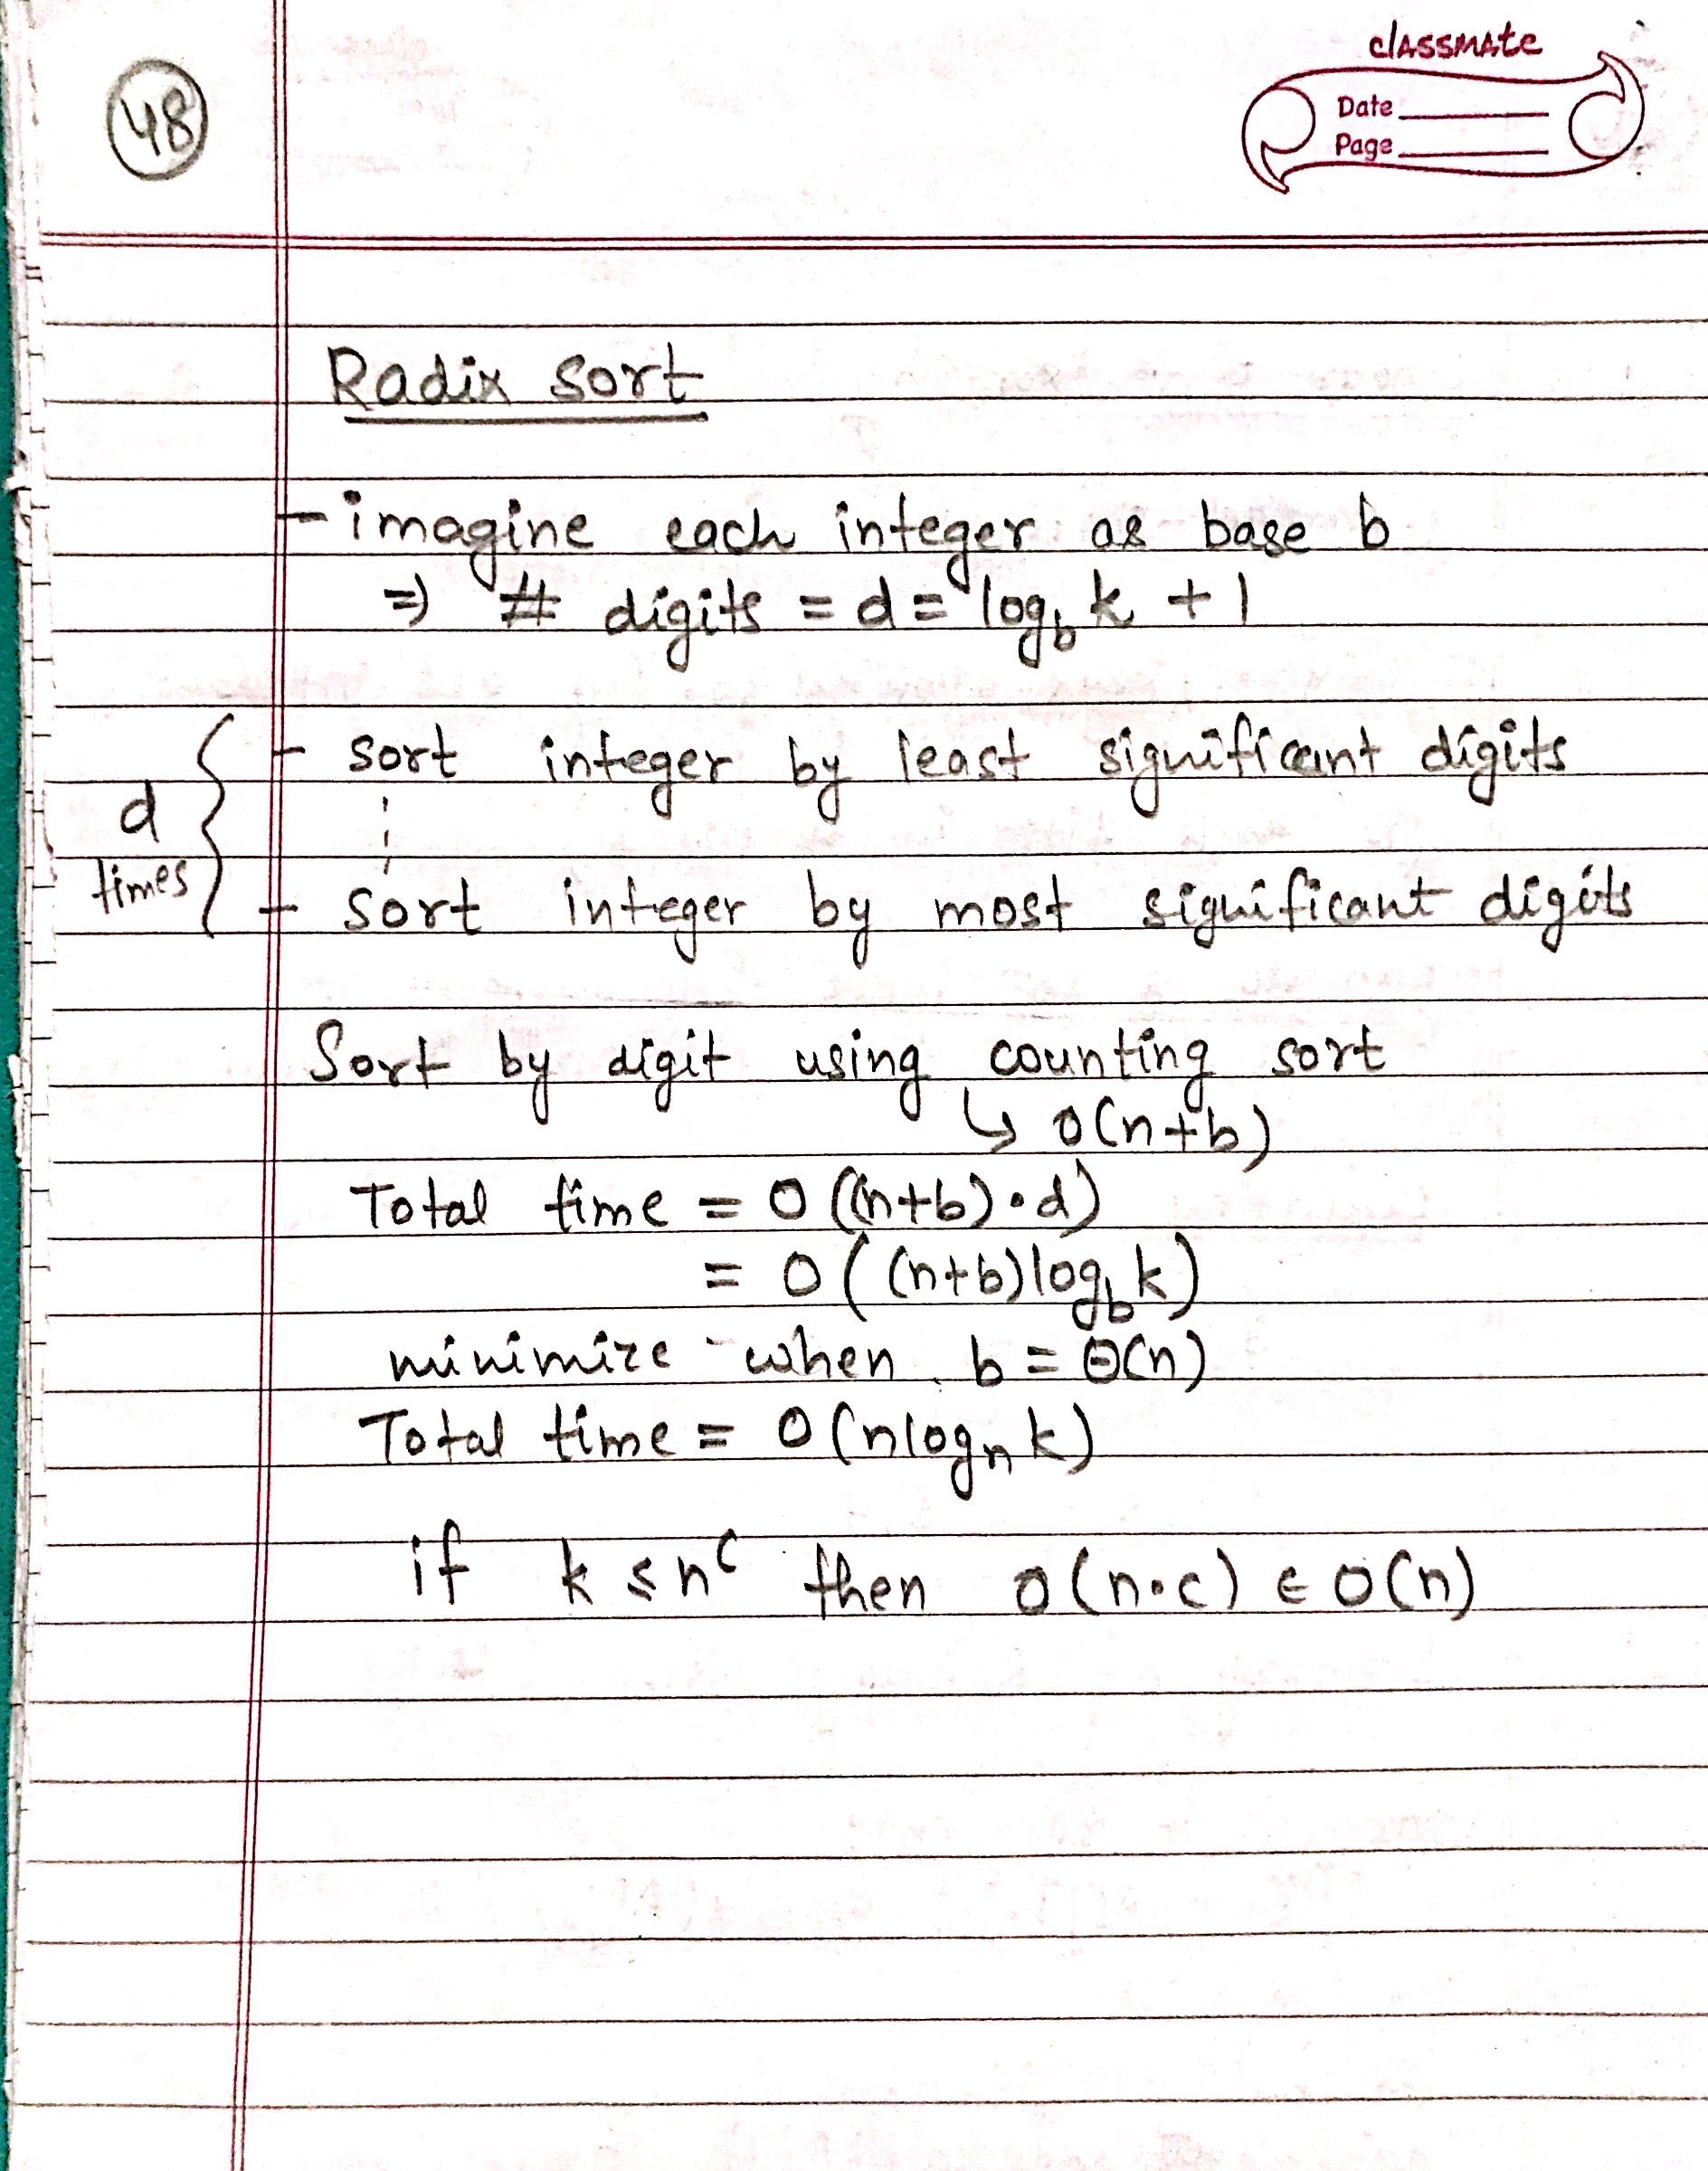 48
classmate
Date
Page
Radix sort
- imagine each integer as base b
⇒ # digits = d = log_b k + 1
d times { - sort integer by least significant digits
⋮
- sort integer by most significant digits
Sort by digit using counting sort
↳ O(n+b)
Total time = O((n+b)·d)
= O((n+b)log_b k)
minimize when b = Θ(n)
Total time = O(nlog_n k)
if k ≤ n^c then O(n·c) ∈ O(n)